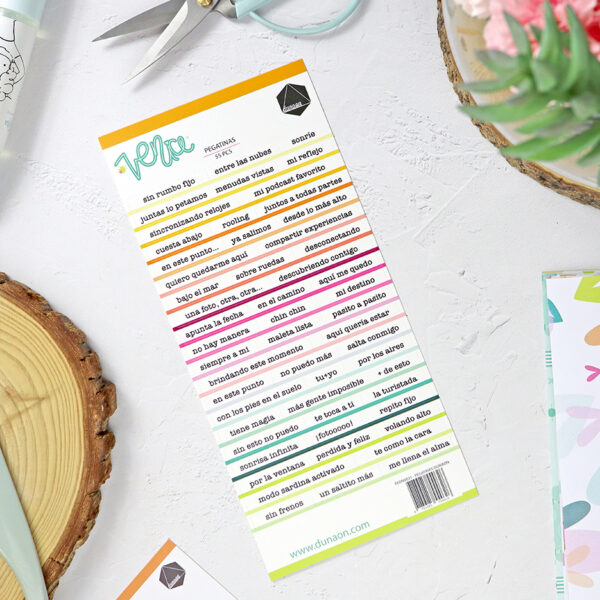 vente
PEGATINAS
55 PCS
dunaon
sin rumbo fijo entre las nubes sonríe
juntas lo petamos menudas vistas mi reflejo
sincronizando relojes mi podcast favorito
cuesta abajo rooling juntos a todas partes
en este punto... ya salimos desde lo más alto
quiero quedarme aquí compartir experiencias
bajo el mar sobre ruedas desconectando
una foto, otra, otra... descubriendo contigo
apunta la fecha en el camino aquí me quedo
no hay manera chin chin mi destino
siempre a mi maleta lista pasito a pasito
brindando este momento aquí quería estar
en este punto no puedo más salta conmigo
con los pies en el suelo tu+yo por los aires
tiene magia más gente imposible + de esto
sin esto no puedo te toca a ti la turistada
sonrisa infinita ¡fotooooo! repito fijo
por la ventana perdida y feliz volando alto
modo sardina activado te como la cara
sin frenos un saltito más me llena el alma
PEGATINAS DUNAON
www.dunaon.com